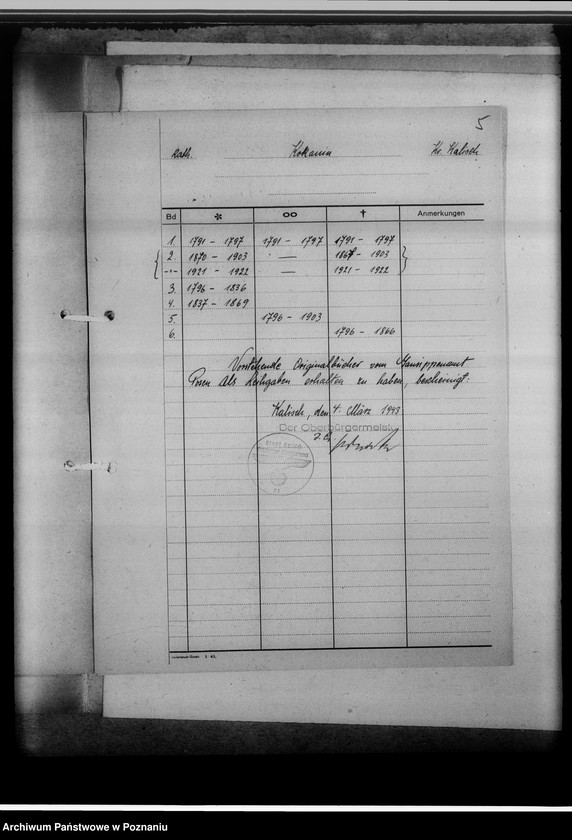 5
kath. Kokanin Kr. Kalisch
Bd * oo † Anmerkungen
1. 1791 - 1797 1791 - 1797 1791 - 1797
2. 1870 - 1903 — 1867 - 1903
-"- 1921 - 1922 — 1921 - 1922
3. 1796 - 1836
4. 1837 - 1869
5. 1796 - 1903
6. 1796 - 1866
Vorstehende Originalbücher vom Gausippenamt
Posen als Leihgaben erhalten zu haben, bescheinigt:
Kalisch, den 4. März 1943
Der Oberbürgermeister
Archiwum Państwowe w Poznaniu